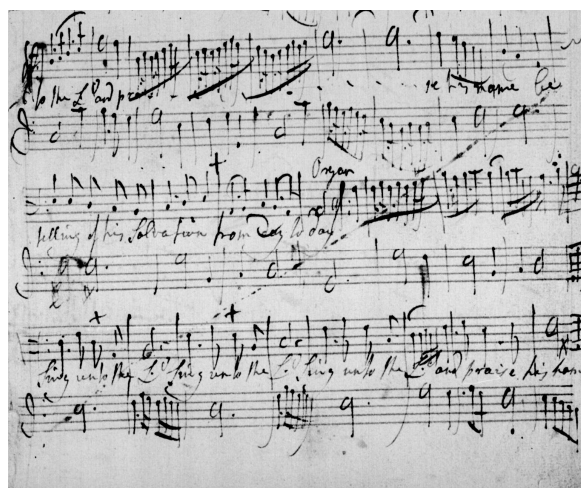 to the Ld and prai - - - - - se his name be
Organ
telling of his Salvation from Day to day
Sing unto the Ld Sing unto the Ld Sing unto the Ld and praise his name